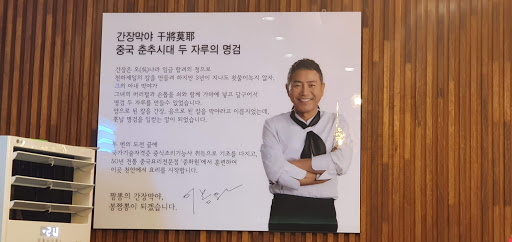 간장막야 干將莫耶
중국 춘추시대 두 자루의 명검
간장은 오(吳)나라 임금 합려의 청으로
천하제일의 칼을 만들려 하지만 3년이 지나도 쇳물이녹지 않자,
그의 아내 막야가
그녀의 머리털과 손톱을 쇠와 함께 가마에 넣고 달구어서
명검 두 자루를 만들수 있었습니다.
양으로 된 칼을 간장, 음으로 된 칼을 막야라고 이름지었는데,
훗날 명검을 일컫는 말이 되었습니다.
두 번의 도전 끝에
국가기술자격증 중식조리기능사 취득으로 기초를 다지고,
50년 전통 중국요리전문점 에서 훈련하여
이곳 천안에서 요리를 시작합니다.
짬뽕의 간장막야,
봉짬뽕이 되겠습니다.
24